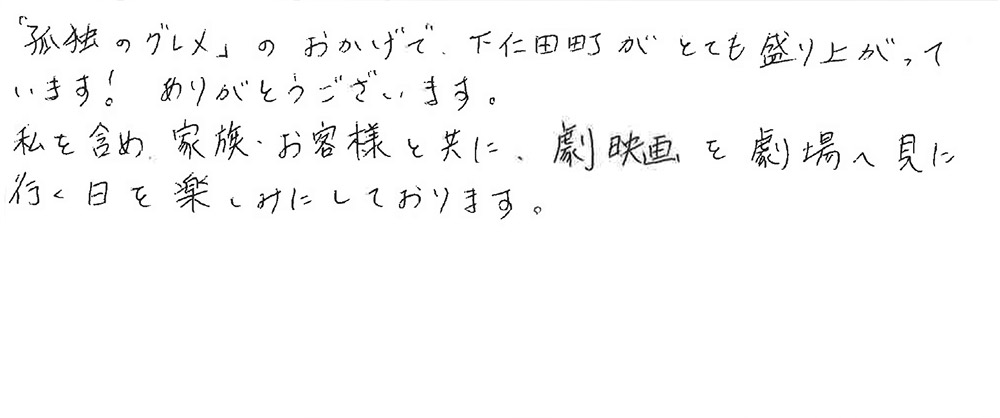 『孤独のグルメ』のおかげで、下仁田町がとても盛り上がって
います！ありがとうございます。
私を含め、家族・お客様と共に、劇映画を劇場へ見に
行く日を楽しみにしております。